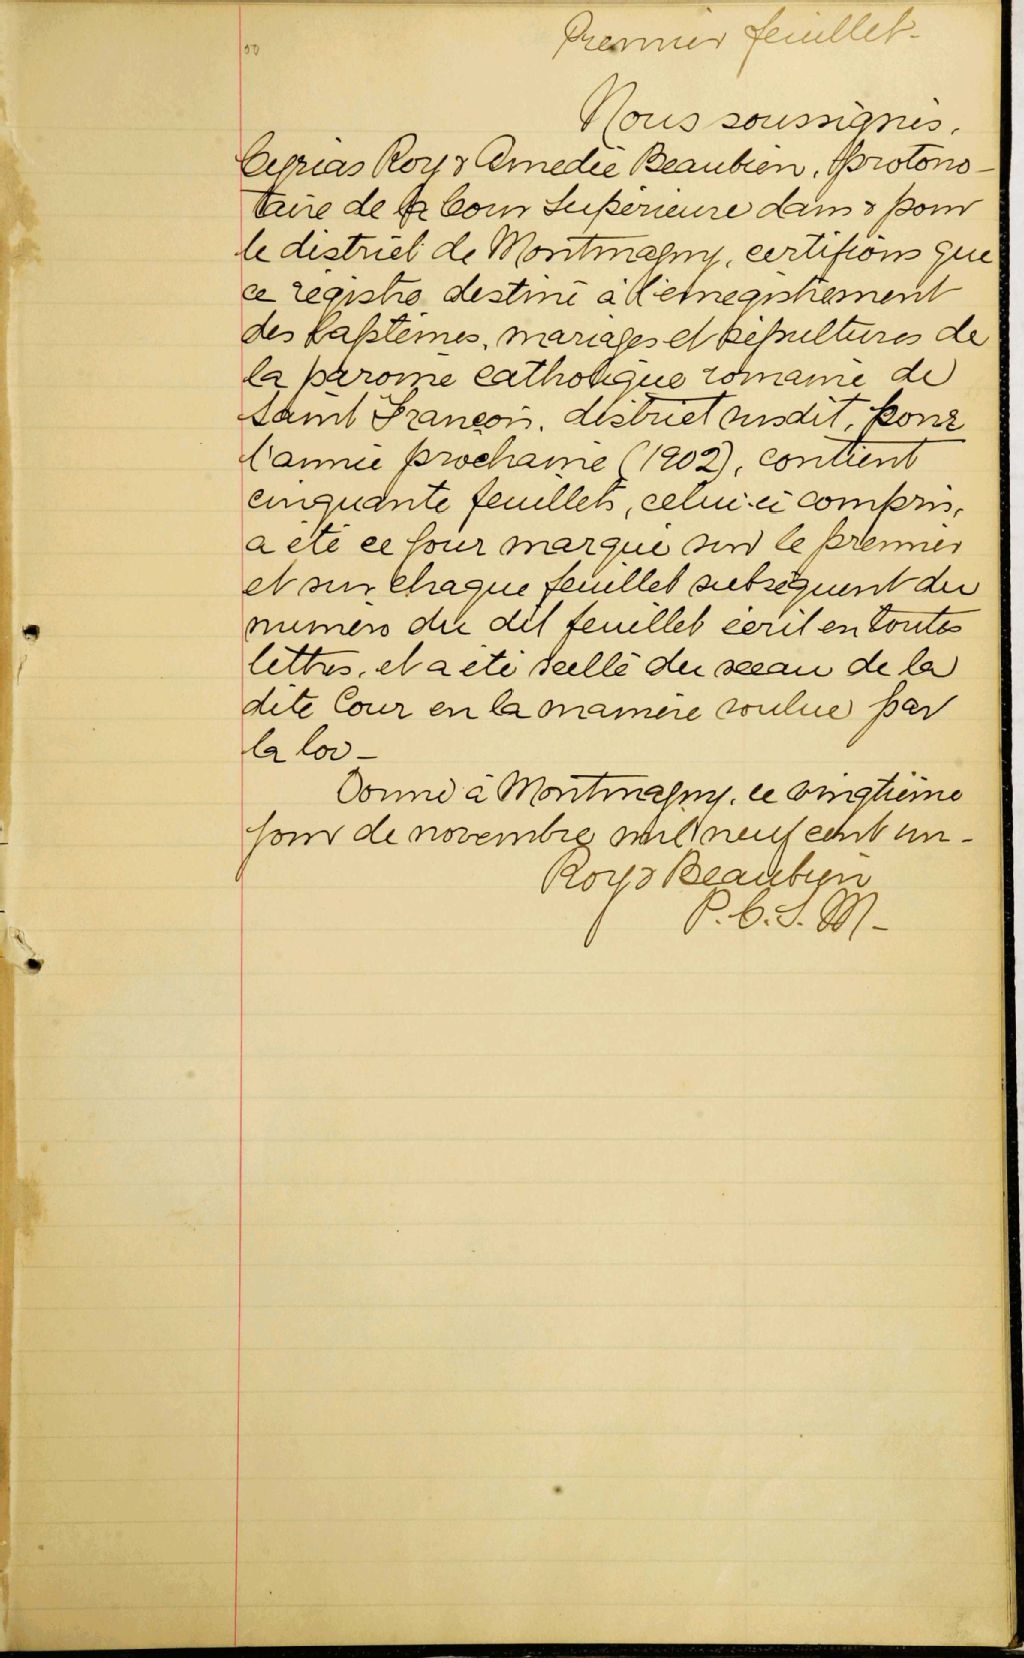 50
Premier feuillet-
Nous soussignés,
Cyrias Roy & Amedée Beaubien, protono-
taire de la Cour Supérieure dans & pour
le district de Montmagny, certifions que
ce régistre destiné à l'enregistrement
des baptêmes, mariages et sépultures de
la paroisse catholique romaine de
Saint François, district susdit, pour
l'année prochaine (1902), contient
cinquante feuillets, celui-ci compris,
a été ce jour marqué sur le premier
et sur chaque feuillet subséquent du
numéro du dit feuillet écrit en toutes
lettres, et a été scellé du sceau de la
dite Cour en la manière voulue par
la loi -
Donné à Montmagny, ce vingtième
jour de novembre mil neuf cent un -
Roy & Beaubien
P. C. S. M -